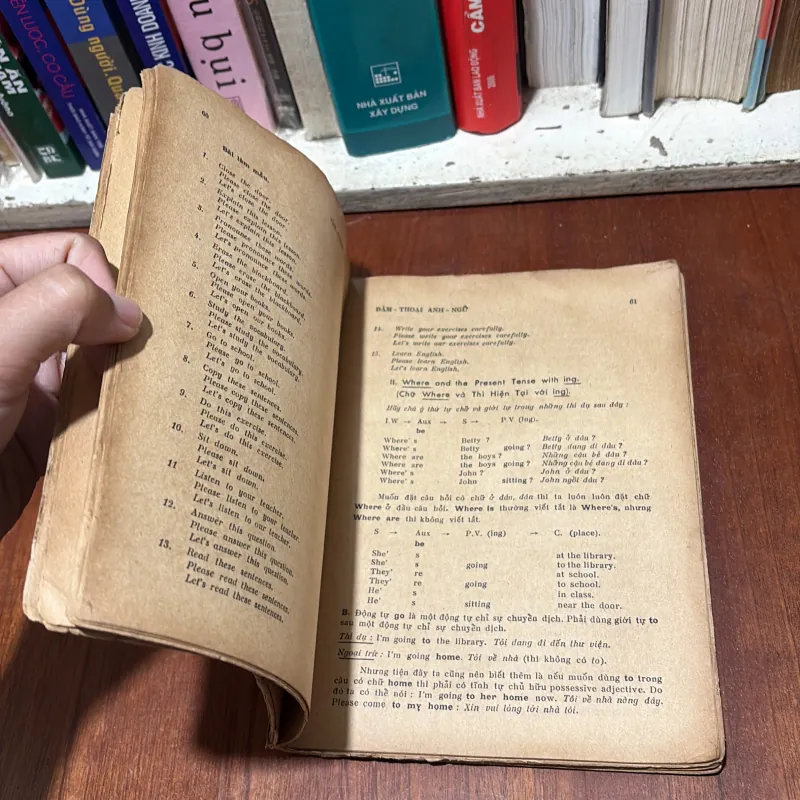 DÙNG NGƯỜI. QU
KINH DOANH
u bụi
NHÀ XUẤT BẢN
XÂY DỰNG
NHÀ XUẤT BẢN LAO ĐỘNG
CẨM
60
Bài làm mẫu.
1. Close the door.
Please close the door.
Let's close the door.
2. Explain this lesson.
Please explain the lesson.
Let's explain this lesson.
3. Pronounce these words.
Please pronounce these words.
Let's pronounce these words.
4. Erase the blackboard.
Please erase the blackboard.
Let's erase the blackboard.
5. Open your books.
Please open your books.
Let's open our books.
6. Study the vocabulary.
Please study the vocabulary.
Let's study the vocabulary.
7. Go to school.
Please go to school.
Let's go to school.
8. Copy these sentences.
Please copy these sentences.
Let's copy these sentences.
9. Do this exercise.
Please do this exercise.
Let's do this exercise.
10. Sit down.
Please sit down.
Let's sit down.
11 Listen to your teacher.
Please listen to your teacher.
Let's listen to our teacher.
12. Answer this question.
Please answer this question.
Let's answer this question.
13. Read these sentences.
Please read these sentences.
Let's read these sentences.
ĐÀM - THOẠI ANH - NGỮ 61
14. Write your exercises carefully.
Please write your exercises carefully.
Let's write our exercises carefully.
15. Learn English.
Please learn English.
Let's learn English.
II. Where and the Present Tense with ing.
(Chữ Where và Thì Hiện Tại với ing).
Hãy chú ý thứ tự chữ và giới tự trong những thí dụ sau đây :
I.W → Aux → S → P.V (ing).
be
Where' s Betty ? Betty ở đâu ?
Where' s Betty going ? Betty đang đi đâu ?
Where are the boys ? Những cậu bé đâu ?
Where are the boys going ? Những cậu bé đang đi đâu ?
Where' s John ? John ở đâu ?
Where' s John sitting ? John ngồi đâu ?
Muốn đặt câu hỏi có chữ ở đâu, đâu thì ta luôn luôn đặt chữ
Where ở đầu câu hỏi. Where is thường viết tắt là Where's, nhưng
Where are thì không viết tắt.
S → Aux → P.V. (ing) → C. (place).
be
She' s at the library.
She' s going to the library.
They' re at school.
They' re going to school.
He' s in class.
He' s sitting near the door.
B. Động tự go là một động tự chỉ sự chuyển dịch. Phải dùng giới tự to
sau một động tự chỉ sự chuyển dịch.
Thí dụ : I'm going to the library. Tôi đang đi đến thư viện.
Ngoại trừ : I'm going home. Tôi về nhà (thì không có to).
Nhưng tiện đây ta cũng nên biết thêm là nếu muốn dùng to trong
câu có chữ home thì phải có tĩnh tự chủ hữu possessive adjective. Do
đó ta có thể nói : I'm going to her home now. Tôi về nhà nàng đây.
Please come to my home : Xin vui lòng tới nhà tôi.